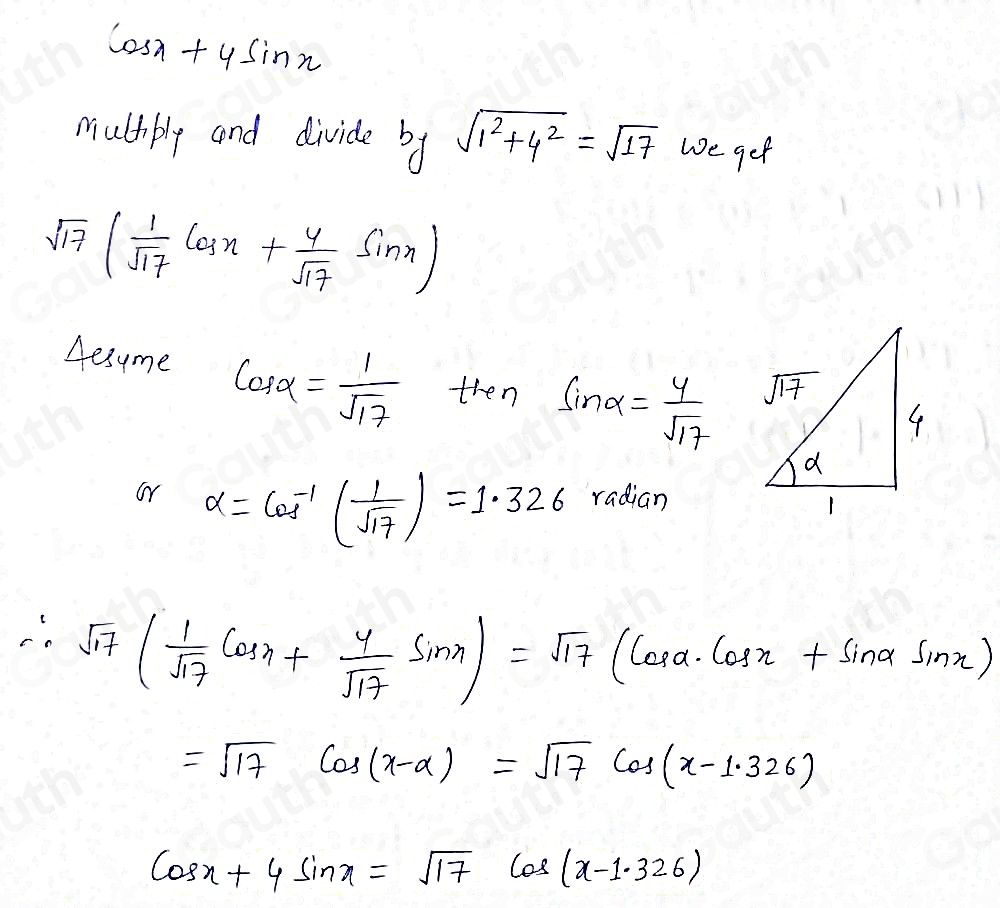 Cosx + 4 Sinx
Multiply and divide by √(1²+4²) = √17 we get
√17 (1/√17 Cosx + 4/√17 Sinx)
Assume Cosα = 1/√17 then Sinα = 4/√17
or α = Cos⁻¹ (1/√17) = 1.326 radian
√17
4
α
1
∴ √17 (1/√17 Cosx + 4/√17 Sinx) = √17 (Cosα. Cosx + Sinα Sinx)
= √17 Cos(x-α) = √17 Cos(x-1.326)
Cosx + 4 Sinx = √17 Cos(x-1.326)